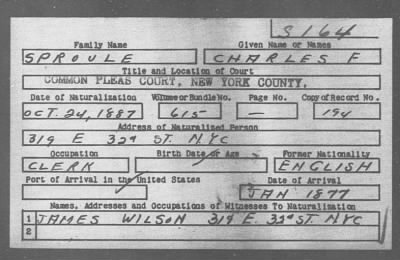 S164
Family Name Given Name or Names
SPROULE CHARLES F
Title and Location of Court
COMMON PLEAS COURT, NEW YORK COUNTY.
Date of Naturalization Volume or Bundle No. Page No. Copy of Record No.
OCT. 24, 1887 615 — 194
Address of Naturalized Person
319 E 32d ST. NYC
Occupation Birth Date or Age Former Nationality
CLERK ENGLISH
Port of Arrival in the United States Date of Arrival
JAN 1877
Names, Addresses and Occupations of Witnesses To Naturalization
1 JAMES WILSON 319 E. 32d ST NYC
2